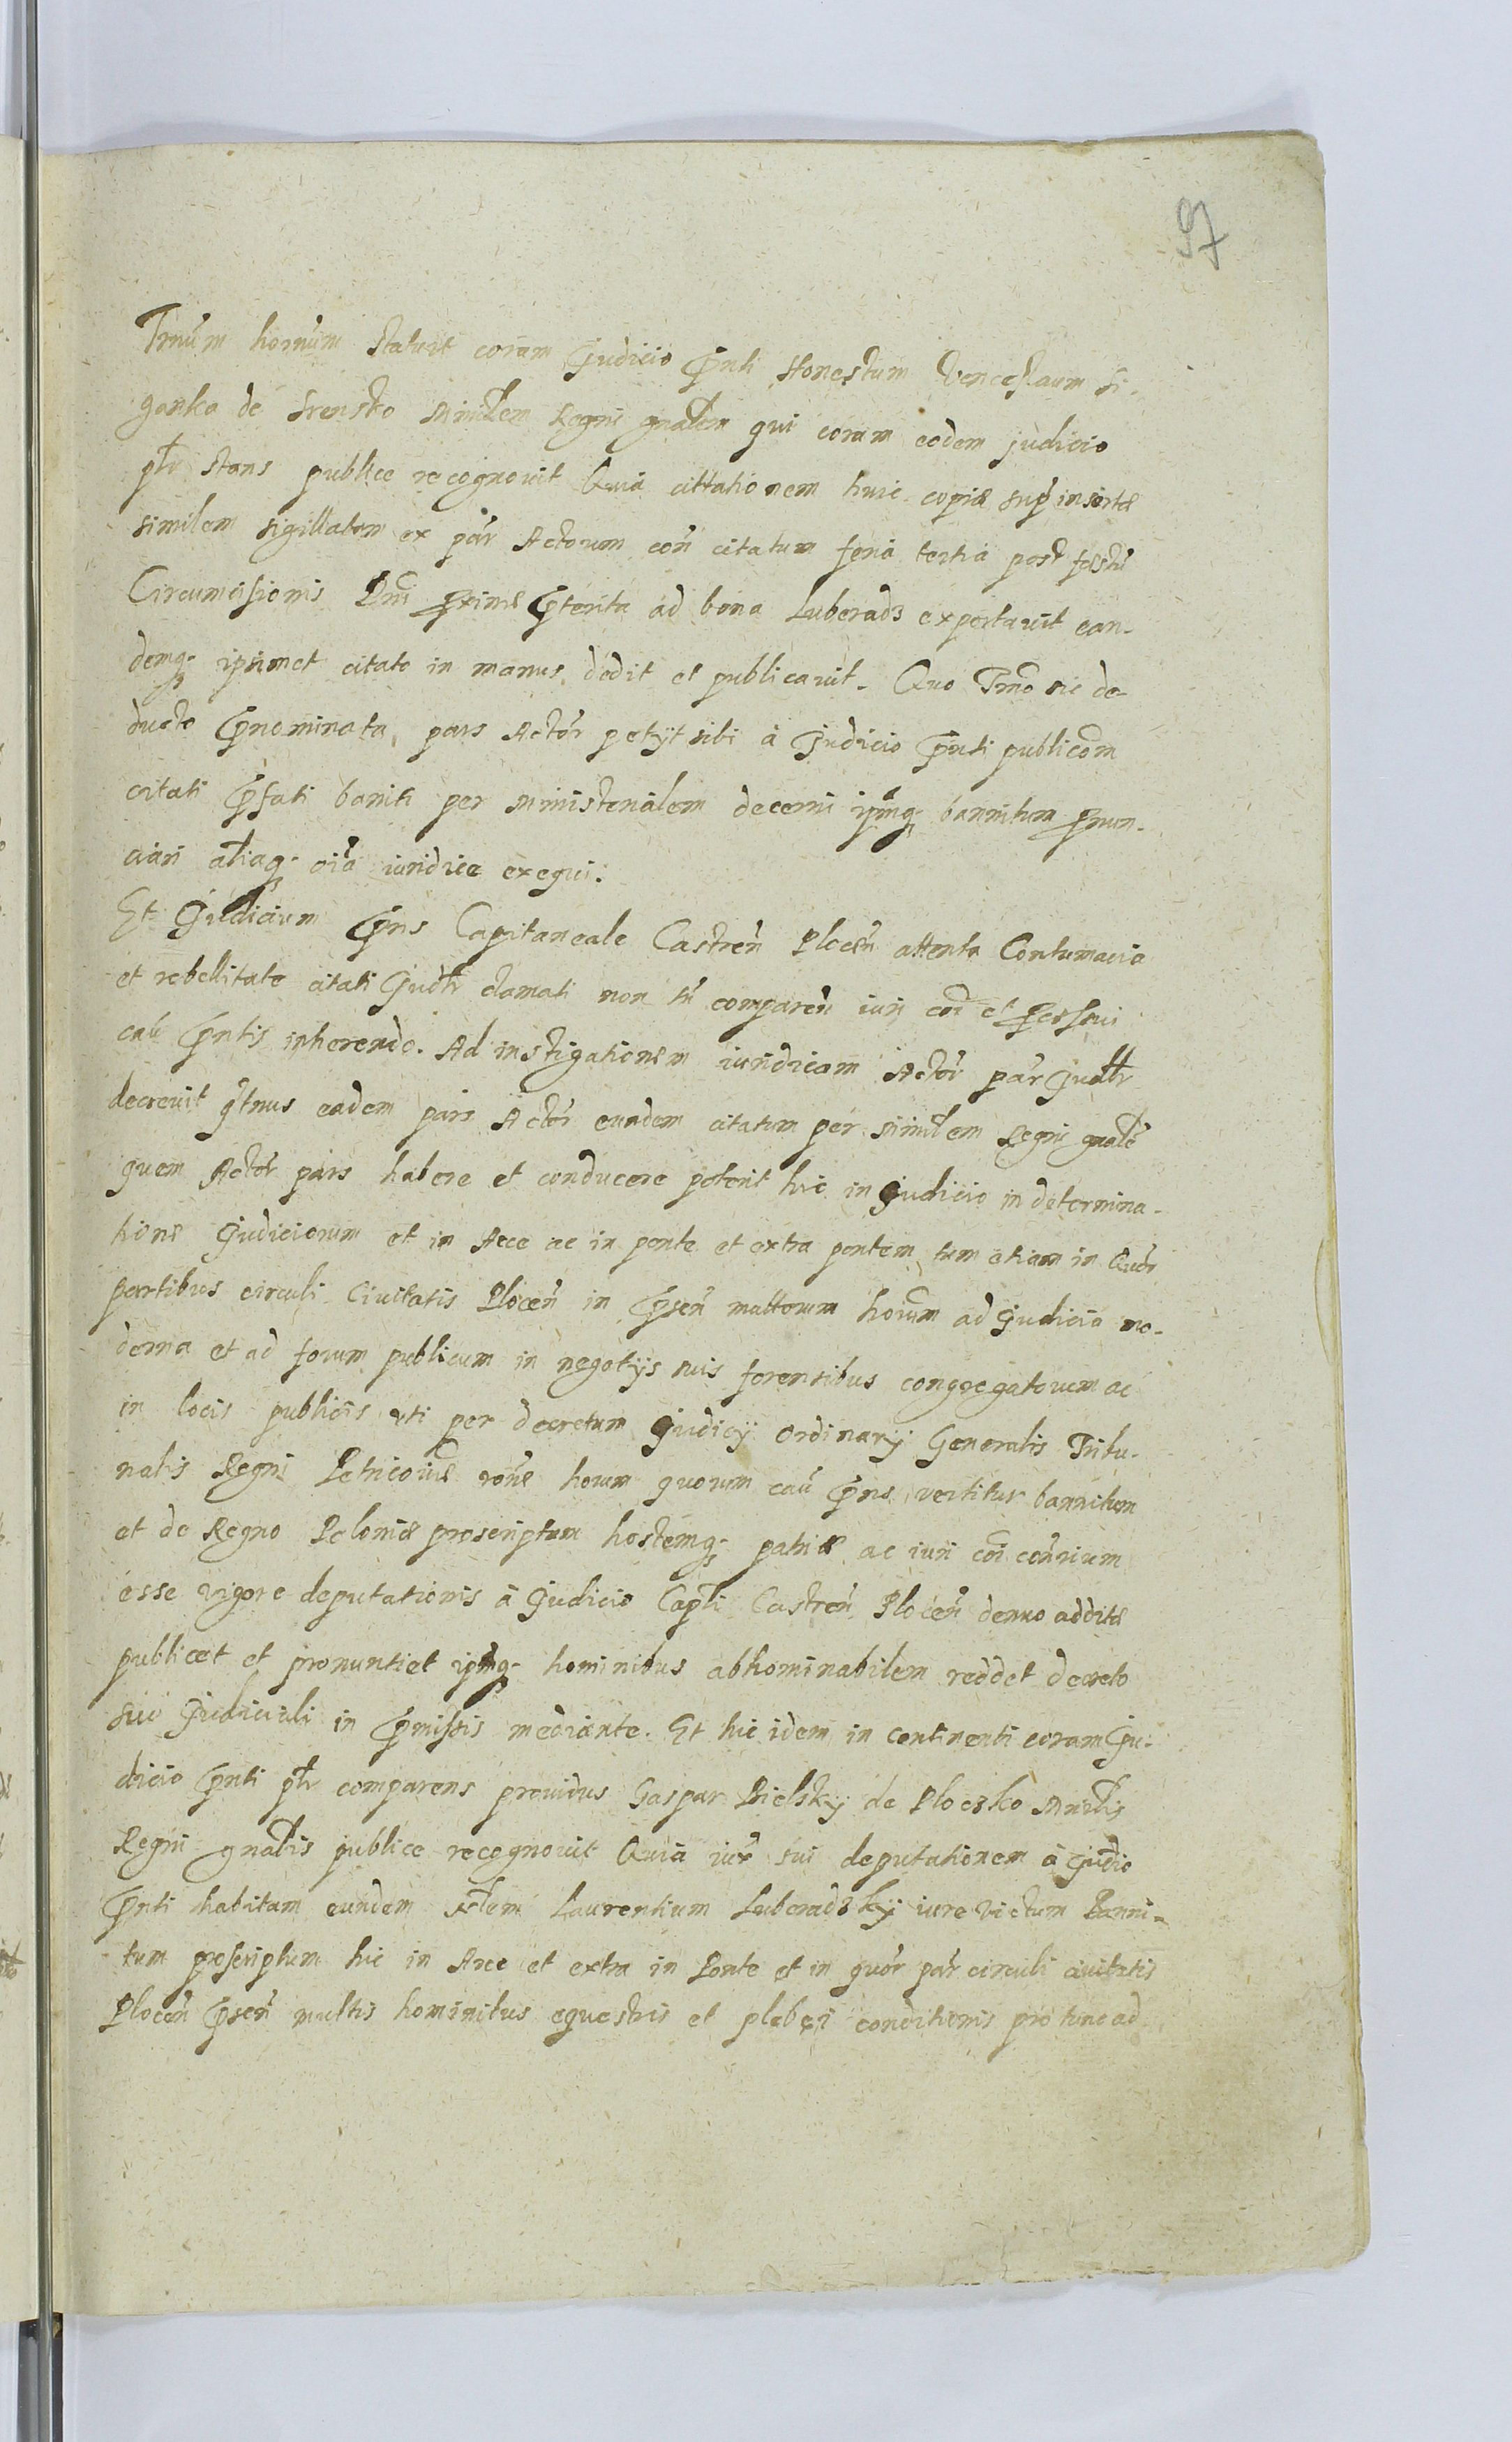 97
Tmum hornum statuit coram Judicio Pnti Honestum Venceslaum Si-
ganka de Srensko Minilem Regni gnalem qui coram eodem judicio
plr stans publice recognouit Quia cittationem huic copiæ sup insertæ
similem sigillatam ex par Actorum con citatum feria tertia post festu
Circumcisionis Dni pxime pterita ad bona Luberadz exportauit ean-
demq ipsimet citato in manus dedit et publicauit. Quo Tmo sic de-
ducto pnominata pars Actor petyt sibi à Judicio pnti publicam
citati pfati baniti per Ministerialem decerni ipmq bannitum pnun-
ciari aliaq oia iuridice exequi.
Et Judicium Pns Capitaneale Castren Plocen attenta Contumacia
et rebellitate citati Judlr clamati non tn comparen iuri coi et
cau pntis inherendo. Ad instigationem iuridicam Actor par Judlr
decreuit qtnus eadem pars Actor eundem citatum per Minilem Regni gnale
quem Actor pars habere et conducere poterit hic in Judicio in determina-
tione Judiciorum et in Arce ac in ponte et extra pontem tum etiam in Quor
partibus circuli Ciuitatis Plocen in psen multorum hoium ad Judicia mo-
derna et ad forum publicum in negotijs suis forensibus congregatorum ac
in locis publicis uti per decretum Judicij Ordinarij Generalis Tribu-
nalis Regni Petricouie rone horum quorum cau pns vertitur bannitum
et de Regno Poloniæ proscriptum hostemq patriæ ac iuri coi conrium
esse vigore deputationis à Judicio Capli Castren Plocen denuo additæ
publicet et pronuntiet ipmq hominibus abhominabilem reddet decreto
suo Judiciali in pmissis mediante. Et hic idem in continenti coram Ju-
dicio pnti plr comparens prouidus Gaspar Bielskij de Ploczko Minilis
Regni gnalis publice recognouit Quia iux sui deputationem à Judio
Pnti habitam eundem Laurentium Luberadzkij iure victum Banni-
tum proscriptum hic in Arce et extra in Ponte et in quor par circuli ciuitatis
Plocen psen multis hominibus equestris et plebei conditionis pro tunc ad